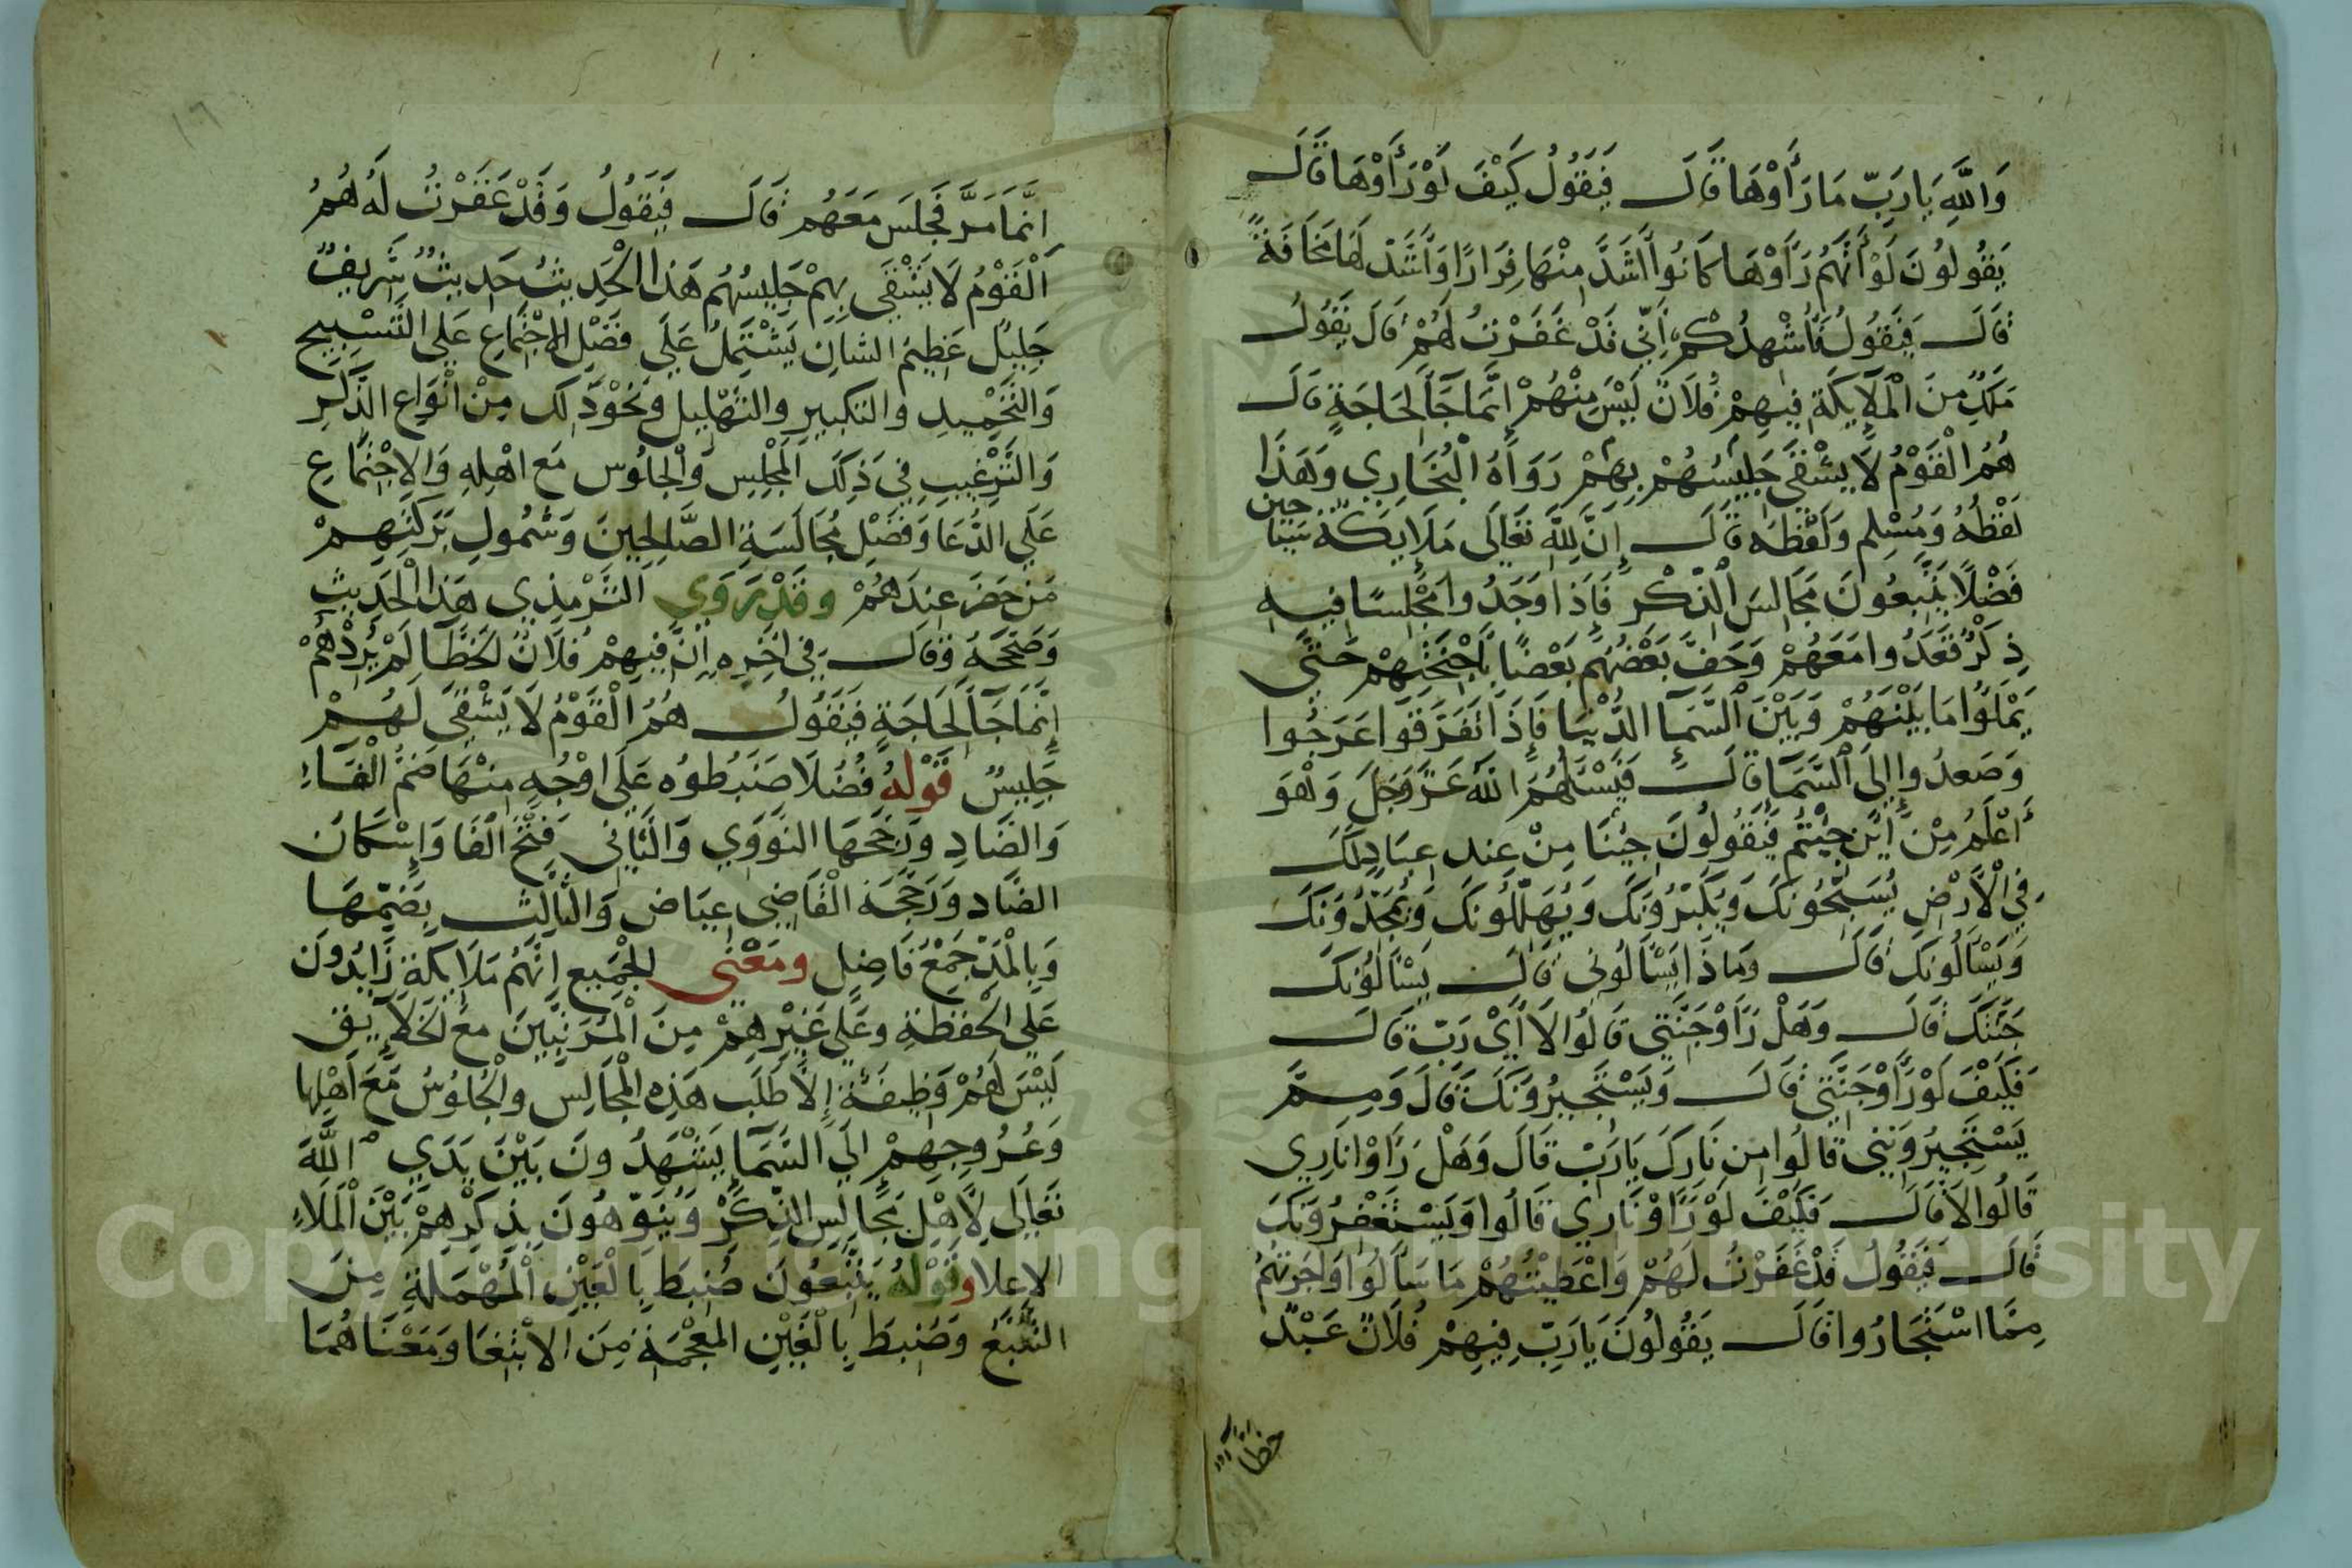 وَاللَّهِ يَا رَبِّ مَا رَأَوْهَا قَالَ فَيَقُولُ كَيْفَ لَوْ رَأَوْهَا قَالَ
يَقُولُونَ لَوْ أَنَّهُمْ رَأَوْهَا كَانُوا أَشَدَّ مِنْهَا فِرَارًا وَأَشَدَّ لَهَا مَخَافَةً
قَالَ فَيَقُولُ فَأُشْهِدُكُمْ أَنِّي قَدْ غَفَرْتُ لَهُمْ قَالَ يَقُولُ
مَلَكٌ مِنَ الْمَلَائِكَةِ فِيهِمْ فُلَانٌ لَيْسَ مِنْهُمْ إِنَّمَا جَآ لِحَاجَةٍ قَالَ
هُمُ الْقَوْمُ لَا يَشْقَى جَلِيسُهُمْ بِهِمْ رَوَاهُ الْبُخَارِي وَهَذَا
لَفْظُهُ وَمُسْلِم وَلَفْظُه قَالَ إِنَّ لِلَّهِ تَعَالَى مَلَايِكَةً سَيَّاحِين
فَضْلًا يَتَّبِعُونَ مَجَالِسَ الذِّكْرِ فَإِذَا وَجَدُوا مَجْلِسًا فِيهِ
ذِكْرٌ قَعَدُوا مَعَهُمْ وَحَفَّ بَعْضُهُمْ بَعْضًا بِأَجْنِحَتِهِمْ حَتَّى
يَمْلَؤُا مَا بَيْنَهُمْ وَبَيْنَ السَّمَآ الدُّنْيَا فَإِذَا تَفَرَّقُوا عَرَجُوا
وَصَعِدُوا إِلَى السَّمَآ قَالَ فَيَسْئَلُهُمُ اللَّهُ عَزَّ وَجَلَّ وَهُوَ
أَعْلَمُ مِنْ أَيْنَ جِيْتُمْ فَيَقُولُونَ جِيْنَا مِنْ عِنْدِ عِبَادٍ لَكَ
فِي الْأَرْضِ يُسَبِّحُونَكَ وَيُكَبِّرُونَكَ وَيُهَلِّلُونَكَ وَيُمَجِّدُونَكَ
وَيَسْأَلُونَكَ قَالَ وَمَاذَا يَسْأَلُونِي قَالَ يَسْأَلُونَكَ
جَنَّتَكَ قَالَ وَهَلْ رَأَوْ جَنَّتِي قَالُوا لَا أَيْ رَبِّ قَالَ
فَكَيْفَ لَوْ رَأَوْ جَنَّتِي قَالَ وَيَسْتَجِيرُونَكَ قَالَ وَمِمَّ
يَسْتَجِيرُونَنِي قَالُوا مِن نَارِكَ يَا رَبِّ قَالَ وَهَلْ رَأَوْا نَارِي
قَالُوا لَا قَالَ فَكَيْفَ لَوْ رَأَوْ نَارِي قَالُوا وَيَسْتَغْفِرُونَكَ
قَالَ فَيَقُولُ قَدْ غَفَرْتُ لَهُمْ وَأَعْطَيْتُهُمْ مَا سَأَلُوا وَأَجَرْتُهُمْ
مِمَّا اسْتَجَارُوا قَالَ يَقُولُونَ يَا رَبِّ فِيهِمْ فُلَانٌ عَبْدٌ
خطا
إِنَّمَا مَرَّ فَجَلَسَ مَعَهُم قَالَ فَيَقُولُ وَقَدْ غَفَرْتُ لَهُ هُمُ
الْقَوْمُ لَا يَشْقَى بِهِمْ جَلِيسُهُم هَذَا الْحَدِيثُ حَدِيثٌ شَرِيفٌ
جَلِيلٌ عَظِيمُ الشانِ يَشْتَمِلُ عَلَي فَضْلِ الِاجْتِمَاعِ عَلَي التَّسْبِيحِ
وَالتَّحْمِيدِ وَالتكبيرِ وَالتهْلِيلِ وَنَحْوَ ذَلِكَ مِنْ أَنْوَاعِ الذِّكْرِ
وَالتَّرْغِيبِ فِي ذَلِكَ الْمَجْلِسِ وَالْجُلُوسِ مَعَ أَهْلِهِ وَالِاجْتِمَاعِ
عَلَي الدُّعَا وَفَضْلِ مُجَالَسَةِ الصَّالِحِينَ وَشُمُولِ بَرَكَتِهِمْ
مَنْ حَضَرَ عِنْدَهُمْ وَقَدْ رَوَي التِّرْمِذِي هَذَا الْحَدِيثِ
وَصَحَّحَهُ وَقَالَ فِي آخِرِهِ إِنَّ فِيهِمْ فُلَانٌ لَخَطَّآ لَمْ يُرِدْهُمْ
إِنَّمَا جَآ لِحَاجَةٍ فَيَقُولُ هُمُ الْقَوْمُ لَا يَشْقَى لَهُمْ
جَلِيسٌ قَوْلُهُ فُضُلًا ضَبَطُوه عَلَي أَوْجُهٍ مِنْهَا ضَمُّ الْفَاءِ
وَالضَّادِ وَرَجَّحَهَا النَّوَوِي وَالثَّانِي فَتْحُ الفَا وَإِسْكَانُ
الضَّادِ وَرَجَّحَهُ الْقَاضِي عِيَاض وَالثَّالِث بِضَمِّهَا
وَبِالْمَدِّ جَمْعُ فَاضِلٍ وَمَعْنَى الْجَمِيعِ أَنَّهُمْ مَلَائِكَةٌ زَائِدُونَ
عَلَي الْحَفَظَةِ وَعَلَي غَيْرِهِمْ مِنَ الْمُرَتَّبِينَ مَعَ الْخَلَآئِقِ
لَيْسَ لَهُمْ وَظِيفَةٌ إِلَّا طَلَب هَذِهِ الْمَجَالِسِ وَالْجُلُوسُ مَعَ أَهْلِهَا
وَعُرُوجِهِمْ إِلَي السَّمَآ يَشْهَدُونَ بَيْنَ يَدَي اللَّهَ
تَعَالَي لِأَهْلِ مَجَالِسِ الذِّكْرِ وَيُنَوِّهُونَ بِذِكْرِهِمْ بَيْنَ الْمَلَاءِ
الاعلا وَقَوْلُهُ يَتَّبِعُونَ ضُبِطَ بِالْعَيْنِ الْمُهْمَلَةِ مِنَ
التَّتَبُّعِ وَضُبِطَ بِالْغَيْنِ الْمُعْجَمَةِ مِنَ الِابْتِغَا وَمَعْنَاهُمَا